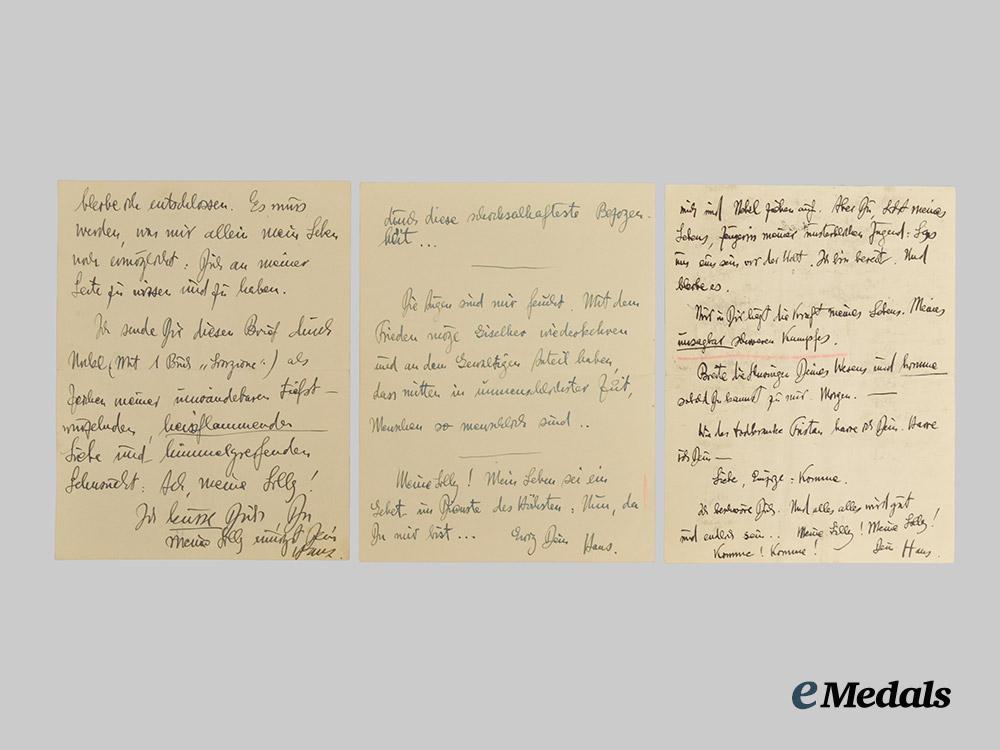 bleibe ich entschlossen. Es muss
werden, was mir allein mein Leben
noch ermöglicht: Dich an meiner
Seite zu wissen und zu haben.
Ich sende Dir diesen Brief durch
Nobel (Mit 1 Buch "Giorgione") als
Zeichen meiner unwandelbaren tiefst-
wurzelnden, heissflammenden
Liebe und himmelgreifenden
Sehnsucht: Ach, meine Lilly!
Ich küsse Dich Du
meine Lilly innigst Dein
Hans.
durch diese schicksalhafteste Begegen-
heit ...
Die Augen sind mir feucht. Mit dem
Frieden möge Giselher wiederkehren
und an dem Gewaltigen Anteil haben,
dass mitten in unmenschlichster Zeit,
Menschen so menschlich sind ..
Meine Lilly! Mein Leben sei ein
Gebet im Dienste des Höchsten: Nun, da
Du mir bist ... Ewig Dein Hans.
mich und Nobel auf. Aber Du, meines
Lebens, meiner unsterblichen Jugend: Lass
uns eins sein vor der Welt. Ich bin bereit. Und
bleibe es.
Nur in Dir liegt die Kraft meines Lebens. Meines
unsagbar schweren Kampfes.
Breite die Schwingen Deines Wesens und komme
sobald Du kannst zu mir. Morgen. —
Wie der todkranke Tristan harre ich Dein. Harre
ich Dein —
Liebe, Einzige: Komme.
Ich beschwöre Dich. Und alles alles wird gut
und endlich sein .. Meine Lilly! Meine Lilly!
Komme! Komme! Dein Hans.
eMedals